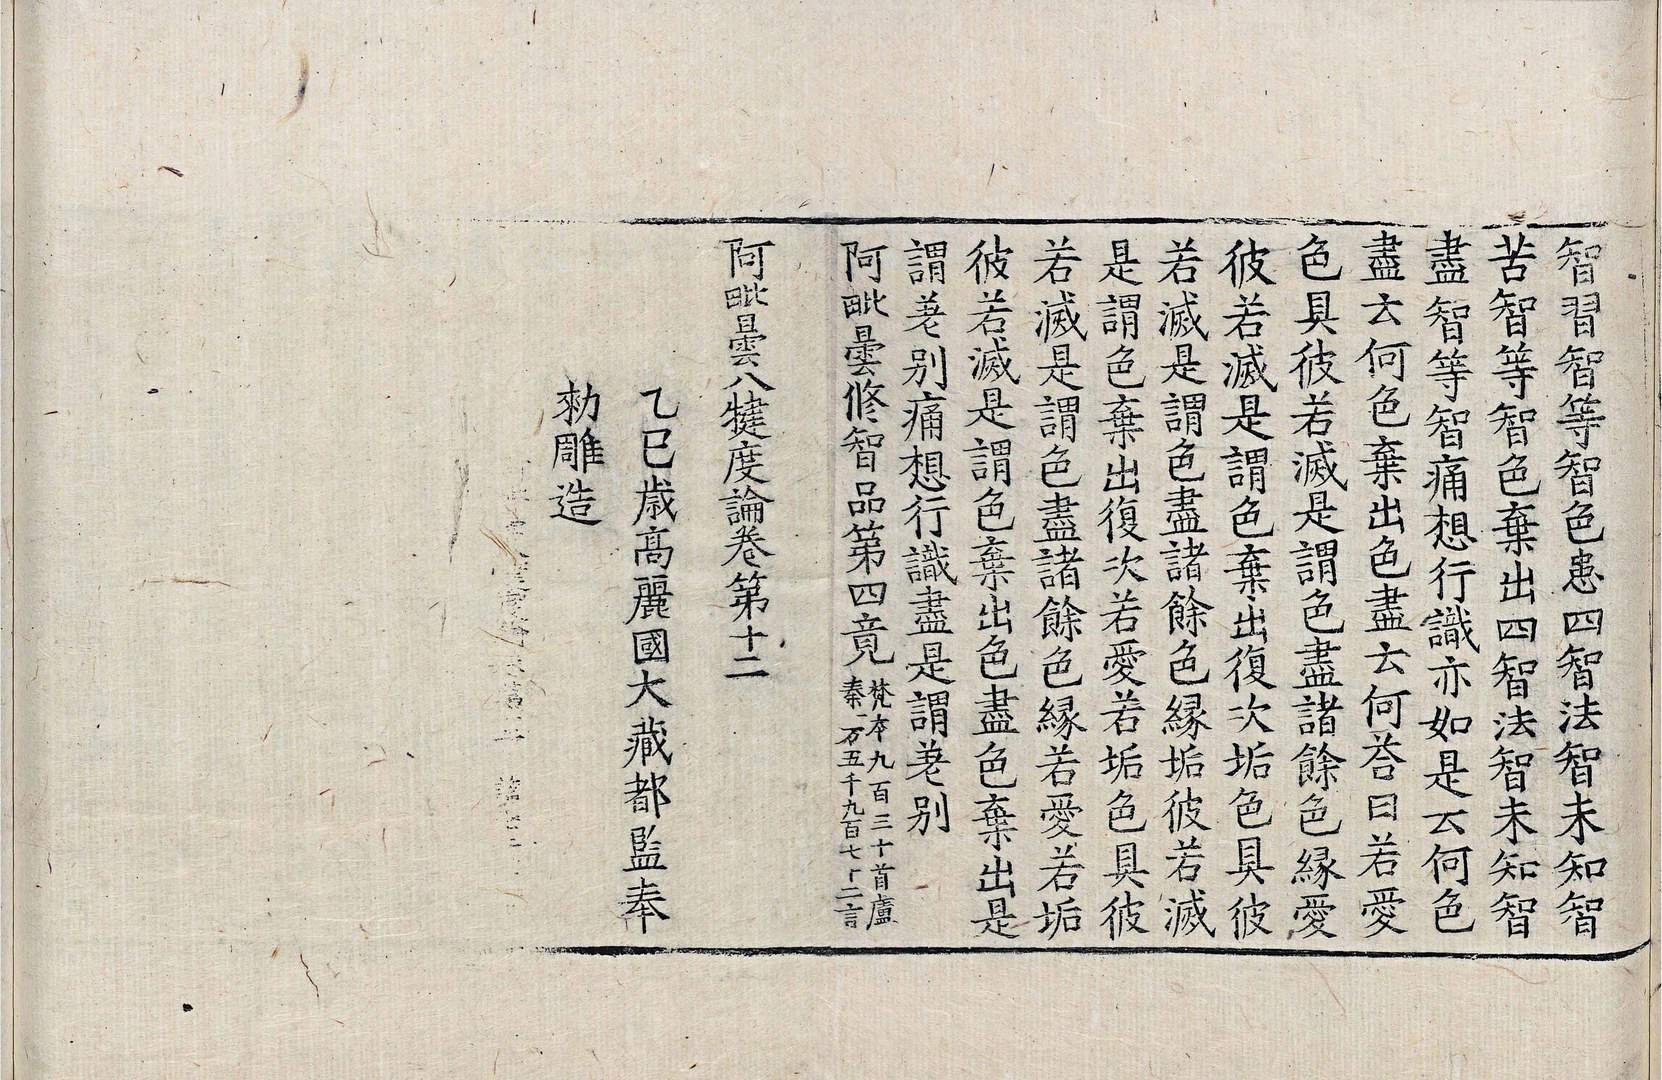 智習智等智色患四智法智未知智
苦智等智色棄出四智法智未知智
盡智等智痛想行識亦如是云何色
盡云何色棄出色盡云何荅曰若愛
色具彼若滅是謂色盡諸餘色緣愛
彼若滅是謂色棄出復次垢色具彼
若滅是謂色盡諸餘色緣垢彼若滅
是謂色棄出復次若愛若垢色具彼
若滅是謂色盡諸餘色緣若愛若垢
彼若滅是謂色棄出色盡色棄出是
謂差別痛想行識盡是謂差別
阿毗曇修智品第四竟 梵本九百三十首盧
秦一万五千九百七十二言
阿毗曇八犍度論卷第十二
乙巳歲高麗國大藏都監奉
勅雕造